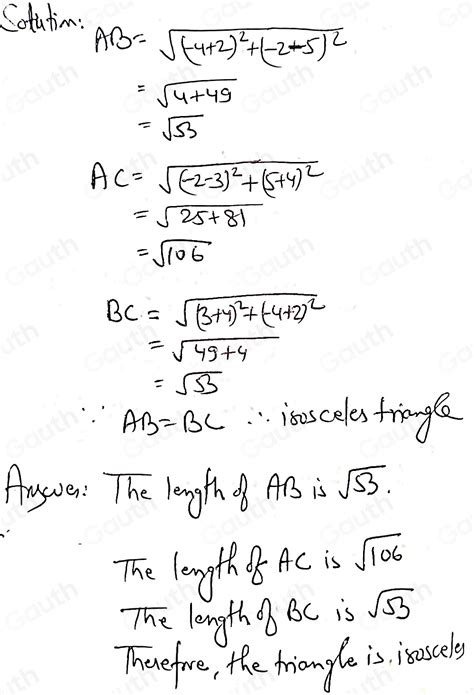 Solution:
AB = √(-4+2)²+(-2-5)²
= √4+49
= √53
AC = √(-2-3)²+(5+4)²
= √25+81
= √106
BC = √(3+4)²+(-4+2)²
= √49+4
= √53
∵ AB=BC ∴ isosceles triangle
Answer: The length of AB is √53.
The length of AC is √106
The length of BC is √53
Therefore, the triangle is isosceles